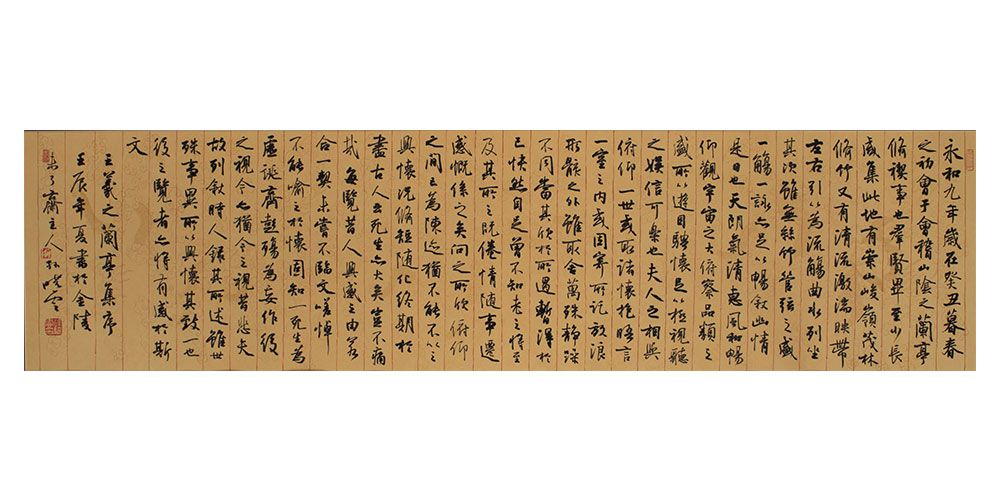 永和九年歲在癸丑暮春
之初會于會稽山陰之蘭亭
脩禊事也羣賢畢至少長
咸集此地有崇山峻嶺茂林
脩竹又有清流激湍映帶
左右引以為流觴曲水列坐
其次雖無絲竹管弦之盛
一觴一詠亦足以暢敘幽情
是日也天朗氣清惠風和暢
仰觀宇宙之大俯察品類之
盛所以遊目騁懷足以極視聽
之娛信可樂也夫人之相與
俯仰一世或取諸懷抱晤言
一室之內或因寄所託放浪
形骸之外雖取舍萬殊靜躁
不同當其欣於所遇暫得於
己快然自足曾不知老之將至
及其所之既倦情隨事遷
感慨係之矣向之所欣俯仰
之間已為陳迹猶不能不以之
興懷況脩短隨化終期於
盡古人云死生亦大矣豈不痛
哉每覽昔人興感之由若
合一契未嘗不臨文嗟悼
不能喻之於懷固知一死生為
虛誕齊彭殤為妄作後
之視今亦猶今之視昔悲夫
故列敘時人錄其所述雖世
殊事異所以興懷其致一也
後之覽者亦將有感於斯
文
王羲之蘭亭集序
壬辰年夏書於金陵
齋主人孫曉雲